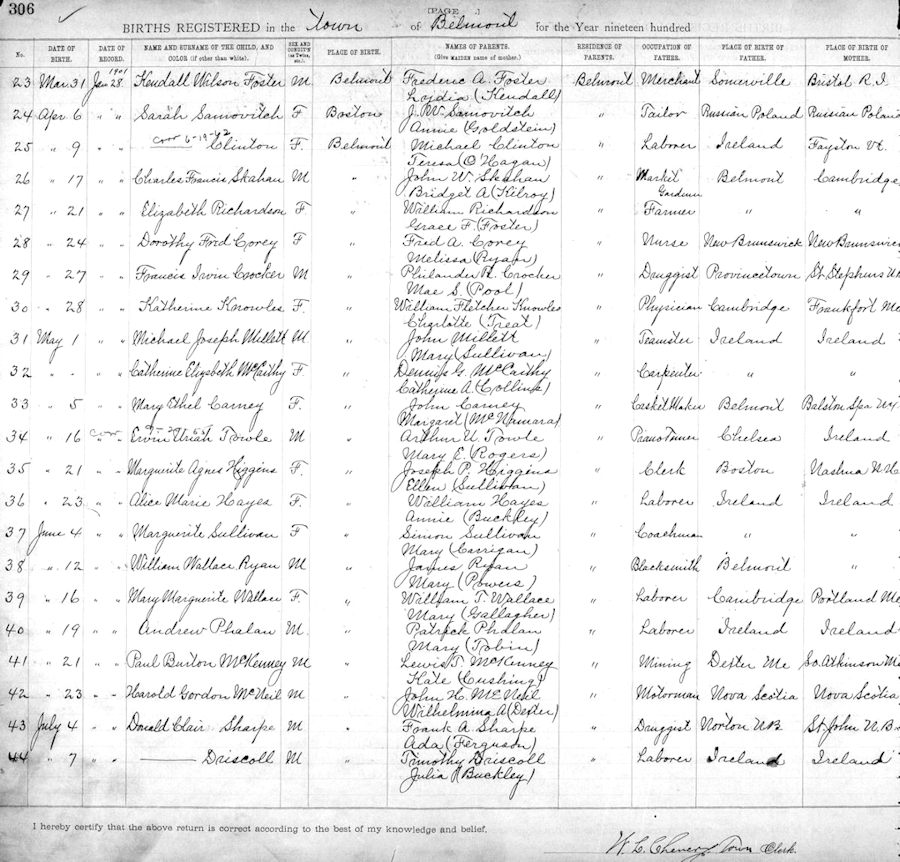 306
[PAGE 1]
BIRTHS REGISTERED in the Town of Belmont for the Year nineteen hundred
No. DATE OF BIRTH. DATE OF RECORD. NAME AND SURNAME OF THE CHILD, AND COLOR (if other than white). SEX AND CONDIT'N (as Twins, etc.) PLACE OF BIRTH. NAMES OF PARENTS. (Give MAIDEN name of mother.) RESIDENCE OF PARENTS. OCCUPATION OF FATHER. PLACE OF BIRTH OF FATHER. PLACE OF BIRTH OF MOTHER.
1901
23 Mar 31 Jan 28 Kendall Wilson Foster M Belmont Frederic A. Foster Belmont Merchant Somerville Bristol R.I.
Lydia (Kendall)
24 Apr 6 " " Sarah Samovitch F Boston J. W. Samovitch " Tailor Russian Poland Russian Poland
Annie (Goldstein)
Corr 6-19-42
25 " 9 " " Clinton F. Belmont Michael Clinton " Laborer Ireland Fayston Vt.
Teresa (O'Hagan)
26 " 17 " " Charles Francis Skahan M " John W. Skahan " Market Gardener Belmont Cambridge
Bridget A (Kilroy)
27 " 21 " " Elizabeth Richardson F " William Richardson " Farmer " "
Grace F. (Foster)
28 " 24 " " Dorothy Ford Corey F " Fred A. Corey " Nurse New Brunswick New Brunswick
Melissa (Ryan)
29 " 27 " " Francis Irvin Crocker M " Philander R. Crocker " Druggist Provincetown St. Stephens
Mae S. (Pool)
30 " 28 " " Katherine Knowles F. " William Fletcher Knowles " Physician Cambridge Frankfort Me
Charlotte (Treat)
31 May 1 " " Michael Joseph Millett M " John Millett " Teamster Ireland Ireland
Mary (Sullivan)
32 " " " " Catherine Elizabeth McCarthy F " Dennis G. McCarthy " Carpenter " "
Catherine A. (Collins)
33 " 5 " " Mary Ethel Carney F. " John Carney " Casket Maker Belmont Balston Spa N.Y.
Margaret (McNamara)
34 " 16 Corr " Ervin Uriah Towle M " Arthur U. Towle " Piano Tuner Chelsea Ireland
Mary E. (Rogers)
35 " 21 " " Marguerite Agnes Higgins F. " Joseph P. Higgins " Clerk Boston Nashua N.H.
Ellen (Sullivan)
36 " 23 " " Alice Marie Hayes F. " William Hayes " Laborer Ireland Ireland
Annie (Buckley)
37 June 4 " " Marguerite Sullivan F " Simon Sullivan " Coachman " "
Mary (Carrigan)
38 " 12 " " William Wallace Ryan M " James Ryan " Blacksmith Belmont "
Mary (Powers)
39 " 16 " " Mary Marguerite Wallace F. " William T. Wallace " Laborer Cambridge Portland Me
Mary (Gallagher)
40 " 19 " " Andrew Phalan M. " Patrick Phalan " Laborer Ireland Ireland
Mary (Tobin)
41 " 21 " " Paul Burton McKenney M " Lewis T. McKenney " Mining Dexter Me So. Atkinson Me
Kate (Cushing)
42 " 23 " " Harold Gordon McNeil M " John H. McNeil " Motorman Nova Scotia Nova Scotia
Wilhelmina A (Dexter)
43 July 4 " " Donald Clair Sharpe M " Frank A. Sharpe " Druggist Norton N.B. St. John N.B.
Ada (Ferguson)
44 " 7 " " —— Driscoll M " Timothy Driscoll " Laborer Ireland Ireland
Julia (Buckley)
I hereby certify that the above return is correct according to the best of my knowledge and belief.
W. L. Chenery, Town Clerk.